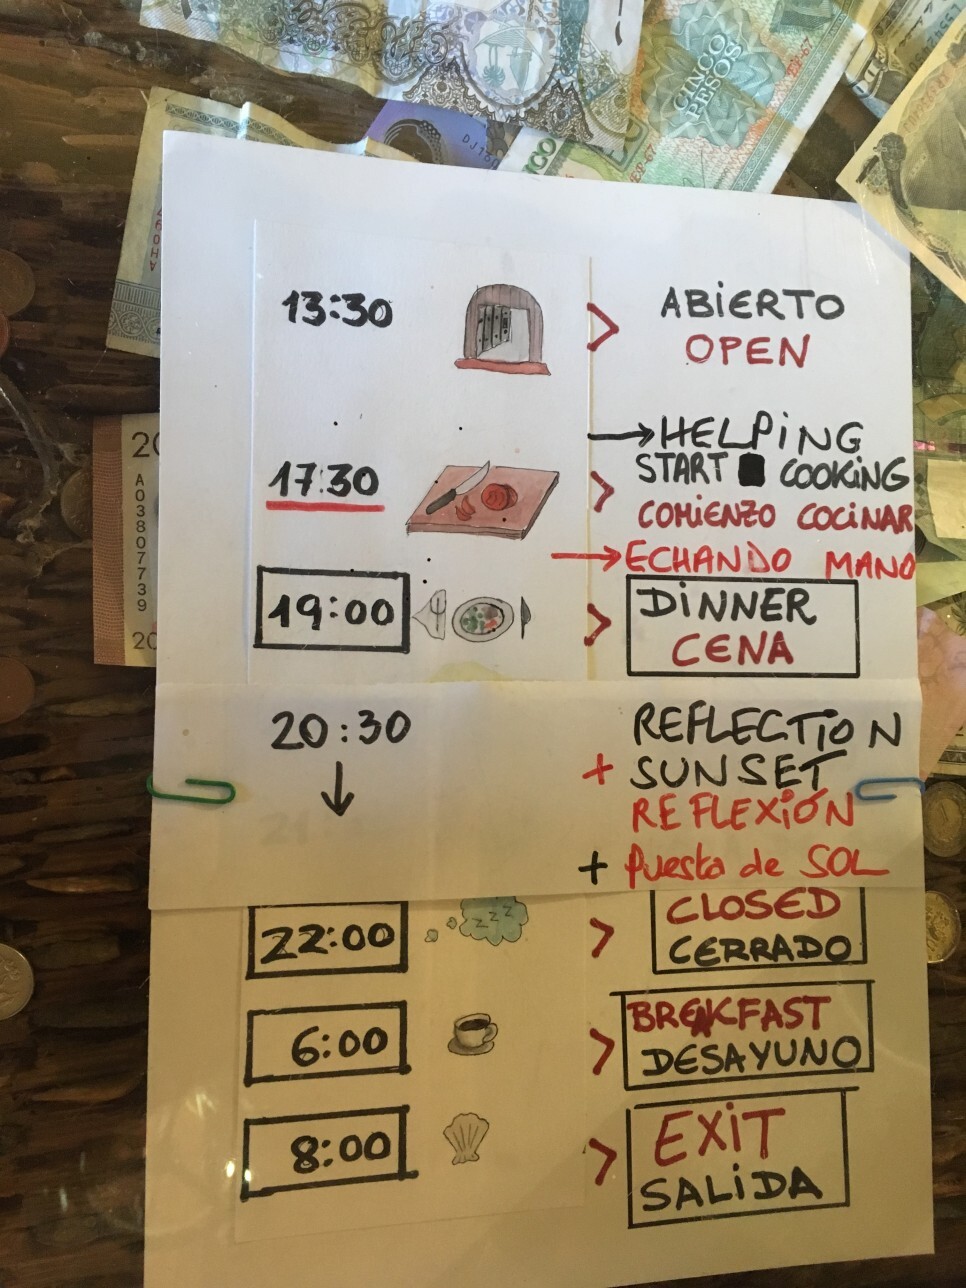 CINCO
PESOS
DJ130
20
A0380779
20
13:30
ABIERTO
OPEN
→ HELPiNG
17:30
START COOKiNG
COMiENZO COCiNAR
→ ECHANDO MANO
19:00
DiNNER
CENA
20:30
REFLECTiON
+ SUNSET
REFLEXiÓN
+ Puesta de SOL
zzz
22:00
CLOSED
CERRADO
6:00
BREAKFAST
DESAYUNO
8:00
EXiT
SALiDA